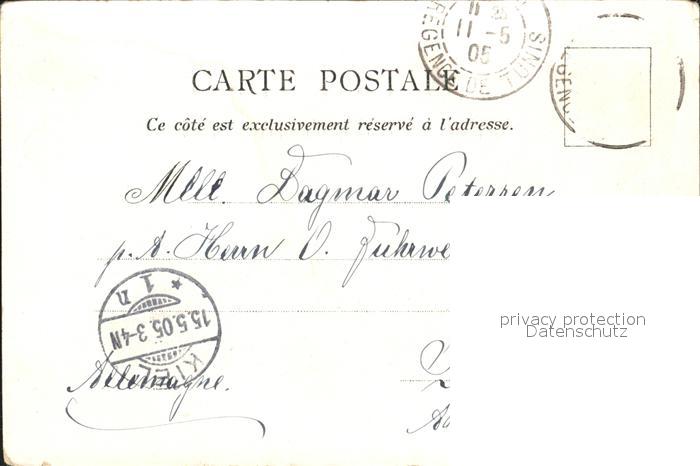 11 25
11 -5
05
REGENCE DE TUNIS
CARTE POSTALE
Ce côté est exclusivement réservé à l'adresse.
Mlle. Dagmar Petersen
p. A. Herrn O. Führwe
* 1 n
15.5.05.3-4N
KIEL
Allemagne.
privacy protection
Datenschutz